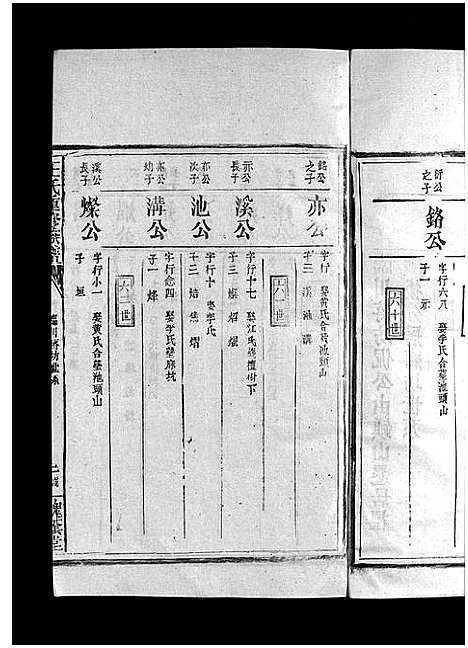 六十世
衍公之子
銘公
字行六八 娶李氏合葬池頭山
子一 亦
銘公之子
亦公
字行 娶黃氏合葬池頭山
子三 溪 池 溝
六一世
亦公長子
溪公
字行十七 娶江氏葬檀樹下
子三 燦 炤 燿
亦公次子
池公
字行十 娶李氏
子三 焙 焦 熠
亦公幼子
溝公
字行念四 娶李氏葬廊坑
子一 烽
六二世
溪公長子
燦公
字行小一 娶黃氏合葬池頭山
子 垣